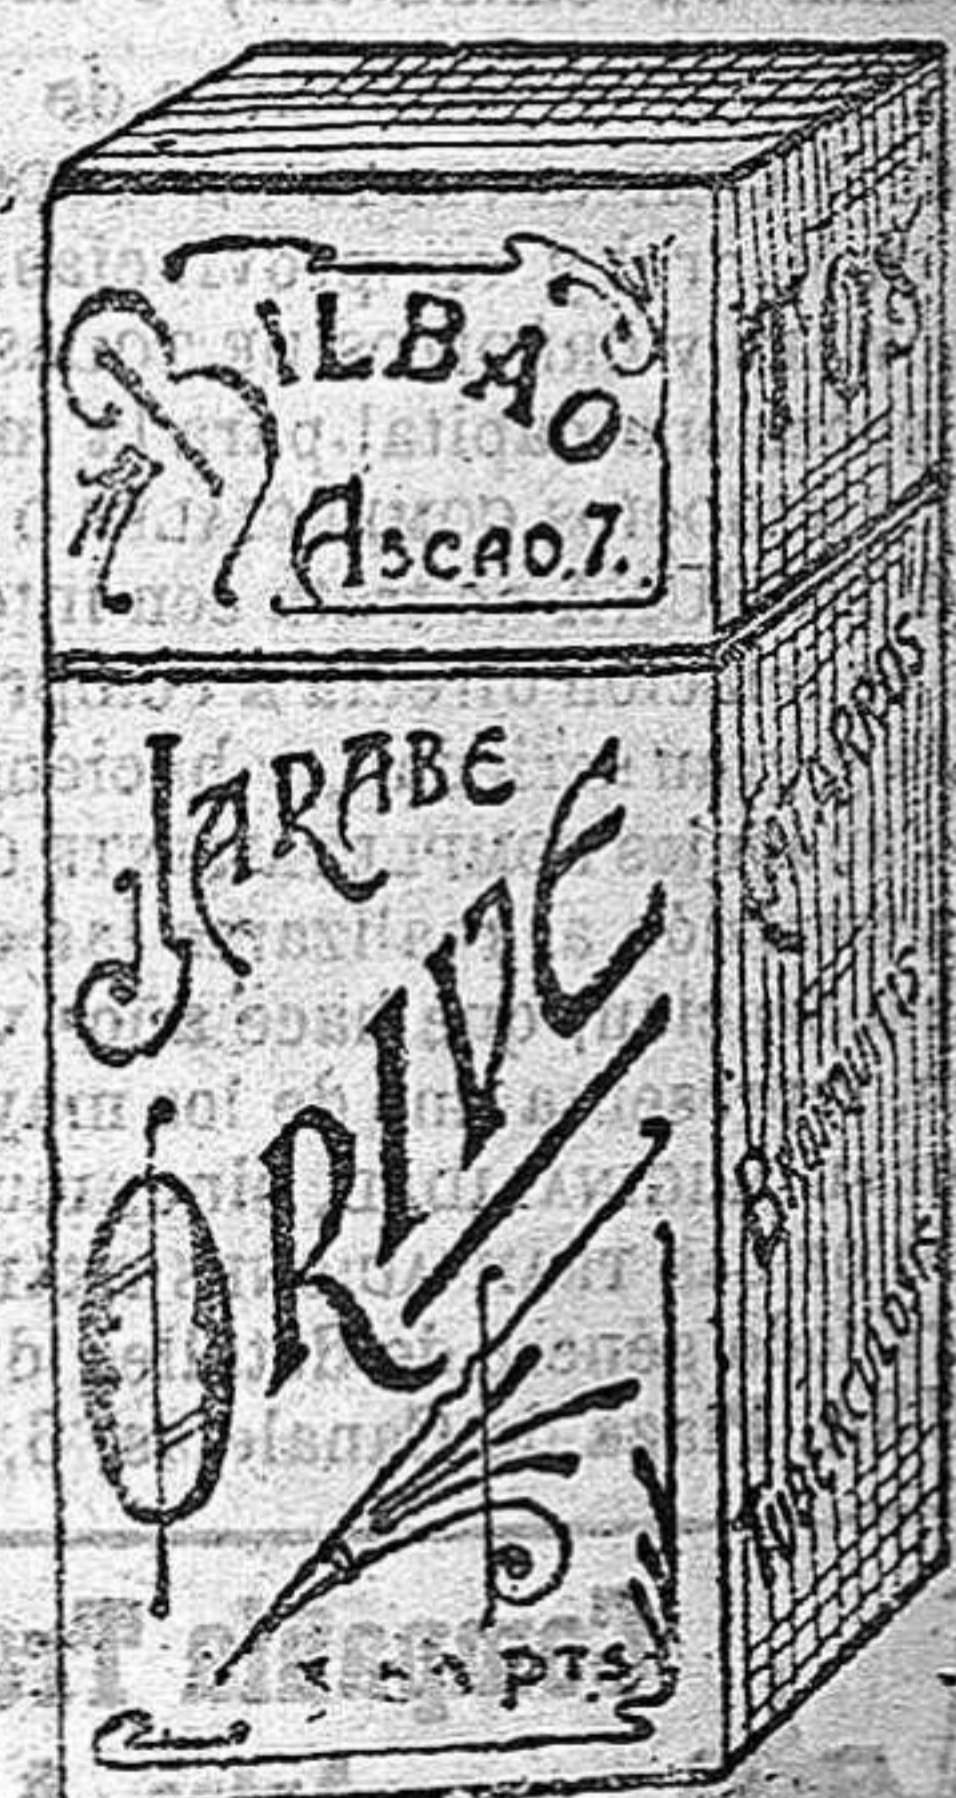 BILBAO
ASCAO.7.
JARABE
ORIVE
PTS
TOS
CATARROS
BRONQUITIS
TUBERCULOSIS